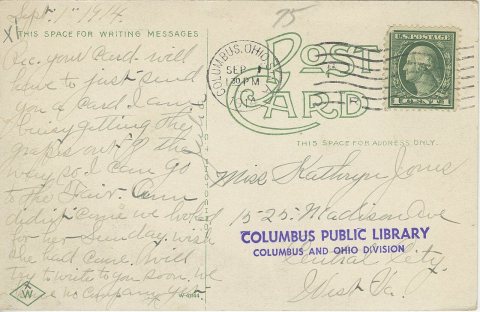 Sept. 1st 1914.
XI
75
THIS SPACE FOR WRITING MESSAGES
Rec. your card will
have to just send
you a card. I am
busy getting the
grapes out of the
way so I can go
to the Fair. Ann
didn't come we looked
for her Sunday wish
she had come. Will
try to write to you soon. We
no company
W
COLUMBUS, OHIO
SEP 1
30 PM
1914
POST
CARD
U.S. POSTAGE
1 CENT 1
THIS SPACE FOR ADDRESS ONLY.
Miss Kathryn Jones
1525 Madison Ave
COLUMBUS PUBLIC LIBRARY
COLUMBUS AND OHIO DIVISION
Central City
West Va.